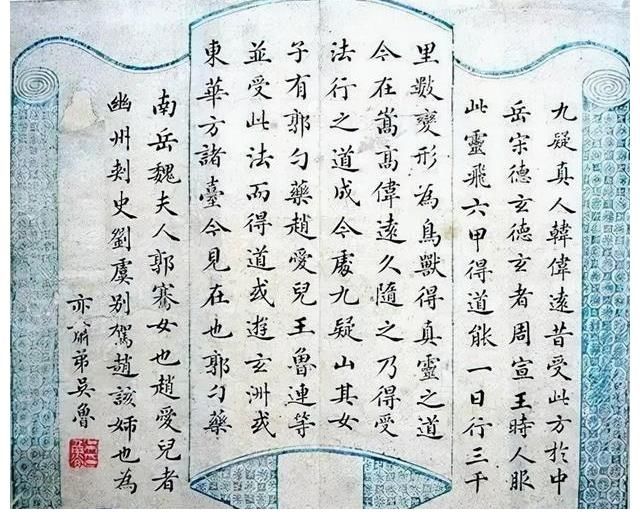 九疑真人韓偉遠昔受此方於中
岳宋德玄德玄者周宣王時人服
此靈飛六甲得道能一日行三千
里數變形為鳥獸得真靈之道
今在嵩高偉遠久隨之乃得受
法行之道成今處九疑山其女
子有郭勺藥趙愛兒王魯連等
並受此法而得道或遊玄洲或
東華方諸臺今見在也郭勺藥
南岳魏夫人郭騫女也趙愛兒者
幽州刺史劉虞别駕趙該姊也為
弟吳魯